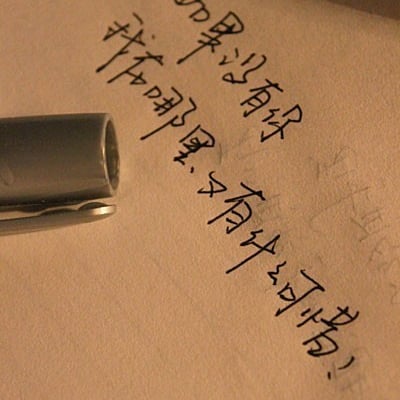 如果没有你
我在哪里、又有什么可惜!